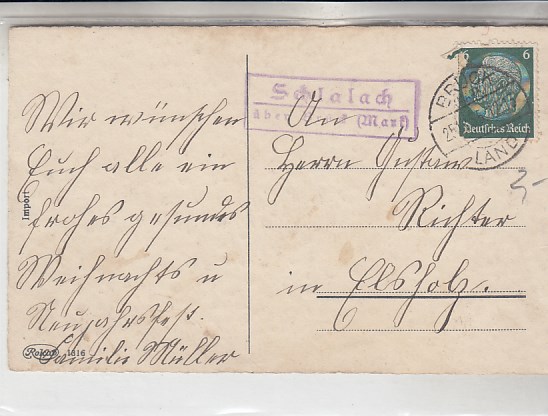 Wir wünschen
Euch alle ein
frohes gesundes
Weihnachts u
Neujahrsfest.
Familie Müller
Import
Reichs 1816
Schlalach
über (Mark)
An
Herrn Gustav
Richter
in Elsholz.
6 6
Deutsches Reich
LAND
3-